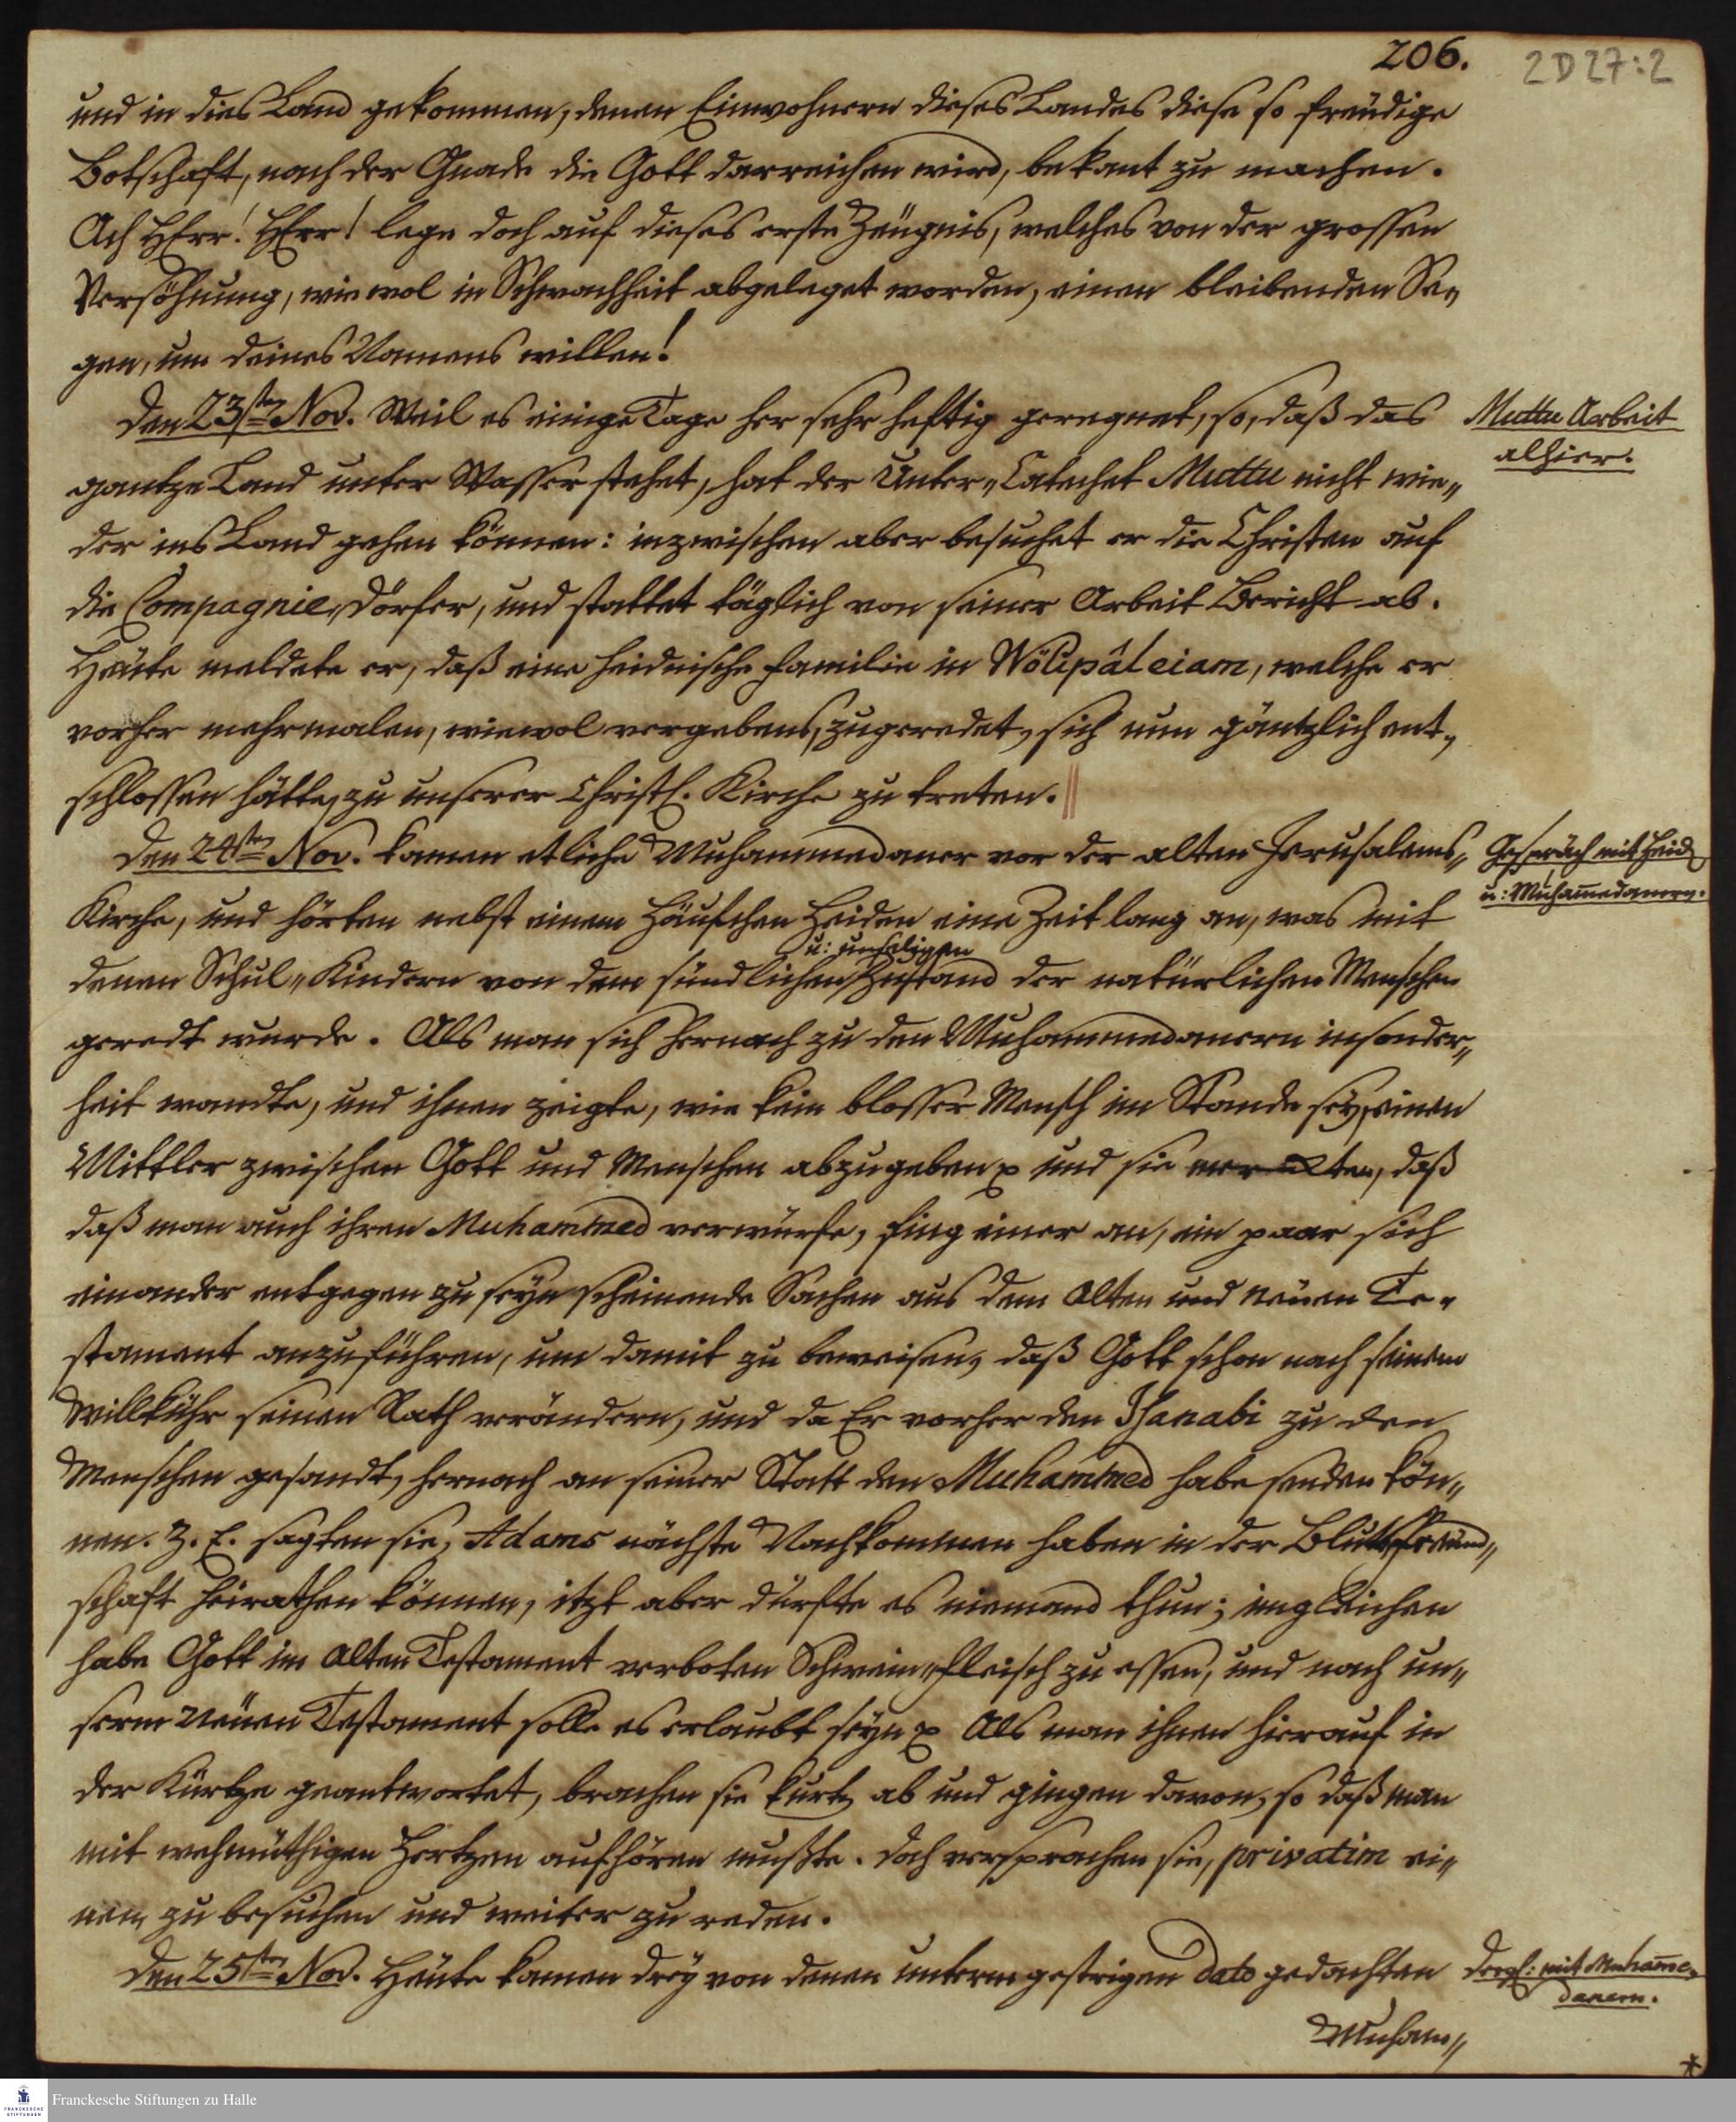 206.
2 D 27:2
und in dies Land gekommen, denen Einwohnern dieses Landes diese so freudige
Botschaft, nach der Gnade die Gott darreichen wird, bekant zu machen.
Ach HErr! HErr! lege doch auf dieses erste Zeugnis, welches von der grossen
Versöhnung, wiewol in Schwachheit abgeleget worden, einen bleibenden Se„
gen, um deines Namens willen!
Den 23sten Nov. Weil es einige Tage her sehr heftig geregnet, so, daß das
Muttu Arbeit
alhier.
gantze Land unter Wasser stehet, hat der Unter„Catechet Muttu nicht wie„
der ins Land gehen können: inzwischen aber besuchet er die Christen auf
die Compagnie„Dörfer, und stattet täglich von seiner Arbeit Bericht ab.
Heute meldete er, daß eine heidnische Familie in Wölipâleiam, welche er
vorher mehrmalen, wiewol vergebens, zugeredet, sich nun gäntzlich ent„
schlossen hätte, zu unserer Christl. Kirche zu treten.
Den 24sten Nov. kamen etliche Muhammedaner vor der alten Jerusalems„
Gespräch mit Heid
u: Muhamedanern.
Kirche, und hörten nebst einem Häufchen Heiden eine Zeitlang an, was mit
u: unseligen
denen Schul„Kindern von dem sündlichen Zustand der natürlichen Menschen
geredt wurde. Als man sich hernach zu den Muhammedanern insonder„
heit wandte, und ihnen zeigte, wie kein blosser Mensch im Stande sey, einen
Mittler zwischen Gott und Menschen abzugeben und sie daß
daß man auch ihren Muhammed verwürfe, fing einer an, ein paar sich
einander entgegen zu seyn scheinende Sachen aus dem Alten und Neuen Te„
stament anzuführen, um damit zu beweisen, daß Gott schon nach seinem
Willkühr seinen Rath verändern, und da Er vorher den Isanabi zu den
Menschen gesandt, hernach an seiner Statt den Muhammed habe senden kön„
nen. Z. E. sagten sie, Adams nächste Nachkommen haben in der Blutsfreund„
schaft heirathen können, itzt aber dürfte es niemand thun; imgleichen
habe Gott im Alten Testament verboten Schwein„fleisch zu essen, und nach un„
serm Neuen Testament solle es erlaubt seyn Als man ihnen hierauf in
der Kürtze geantwortet, brachen sie kurtz ab und gingen davon, so daß man
mit wehmüthigen Hertzen aufhören mußte. Doch versprachen sie, privatim ei„
nen zu besuchen und weiter zu reden.
Den 25sten Nov. Heute kamen drey von denen unterm gestrigen dato gedachten
Dergl: mit Muhame„
danern.
Muham„
Franckesche Stiftungen zu Halle
FRANCKESCHE
STIFTUNGEN